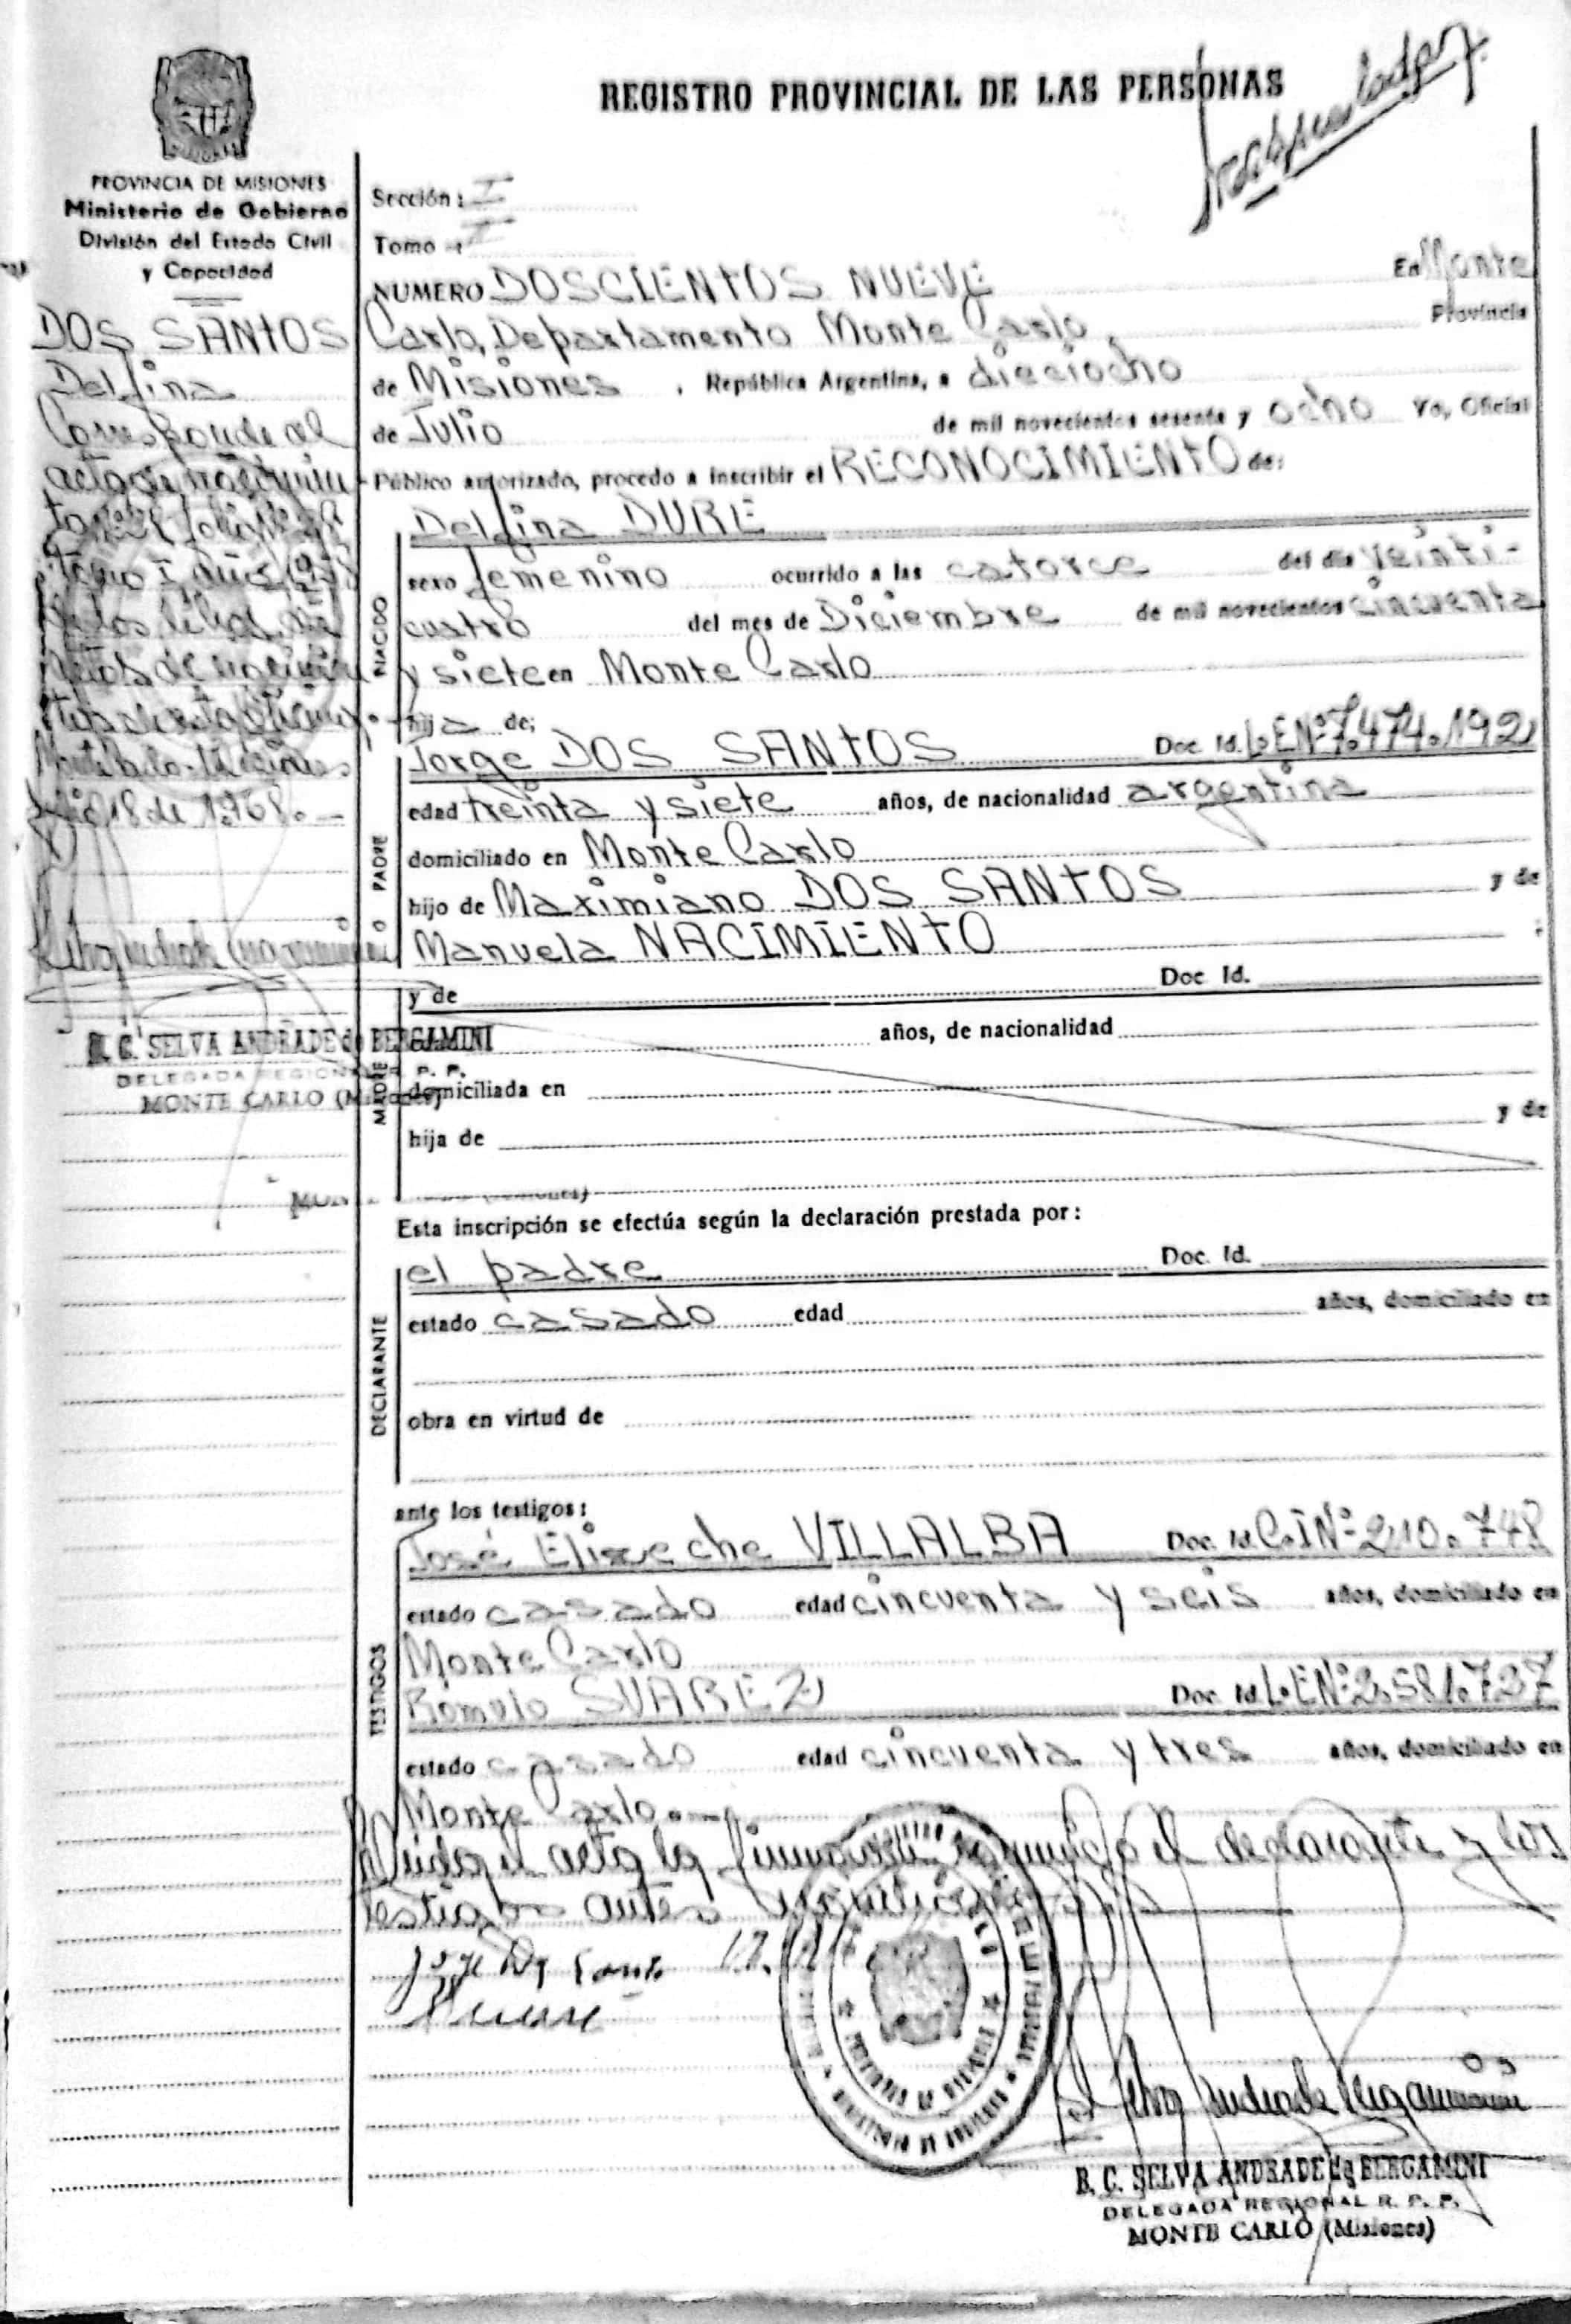 REGISTRO PROVINCIAL DE LAS PERSONAS
PROVINCIA DE MISIONES
Ministerio de Gobierno
División del Estado Civil
y Capacidad
DOS SANTOS
Delfina
Corresponde al
acta de nacimien-
to Nº folio
Tomo I año
de los libros de
actas de nacimien
tos de esta oficina
Monte Carlo - Misiones
Julio 18 de 1968.-
B. C. SELVA ANDRADE de BERGAMINI
DELEGADA REGIONAL R. P. P.
MONTE CARLO (Misiones)
Sección: I
Tomo : I
NUMERO DOSCIENTOS NUEVE En Monte
Carlo, Departamento Monte Carlo Provincia
de Misiones , República Argentina, a dieciocho
de Julio de mil novecientos sesenta y ocho Yo, Oficial
Público autorizado, procedo a inscribir el RECONOCIMIENTO de:
NACIDO
Delfina DURE
sexo femenino ocurrido a las catorce del día veinti-
cuatro del mes de Diciembre de mil novecientos cincuenta
y siete en Monte Carlo
hija de;
PADRE
Jorge DOS SANTOS Doc. Id. L.E.Nº 7.474.192
edad treinta y siete años, de nacionalidad argentina
domiciliado en Monte Carlo
hijo de Maximiano DOS SANTOS y de
Manuela NACIMIENTO ;
MADRE
y de Doc. Id.
edad años, de nacionalidad
domiciliada en
hija de y de
Esta inscripción se efectúa según la declaración prestada por:
DECLARANTE
el padre Doc. Id.
estado casado edad años, domiciliado en
obra en virtud de
ante los testigos:
TESTIGOS
José Elizeche VILLALBA Doc. Id. C.I Nº 210.748
estado casado edad cincuenta y seis años, domiciliado en
Monte Carlo
Rómulo SUAREZ Doc. Id. L.E.Nº 2.581.737
estado casado edad cincuenta y tres años, domiciliado en
Monte Carlo.-
Leída el acta la firman conmigo el declarante y los
testigos antes mencionados.
B. C. SELVA ANDRADE de BERGAMINI
DELEGADA REGIONAL R. P. P.
MONTE CARLO (Misiones)